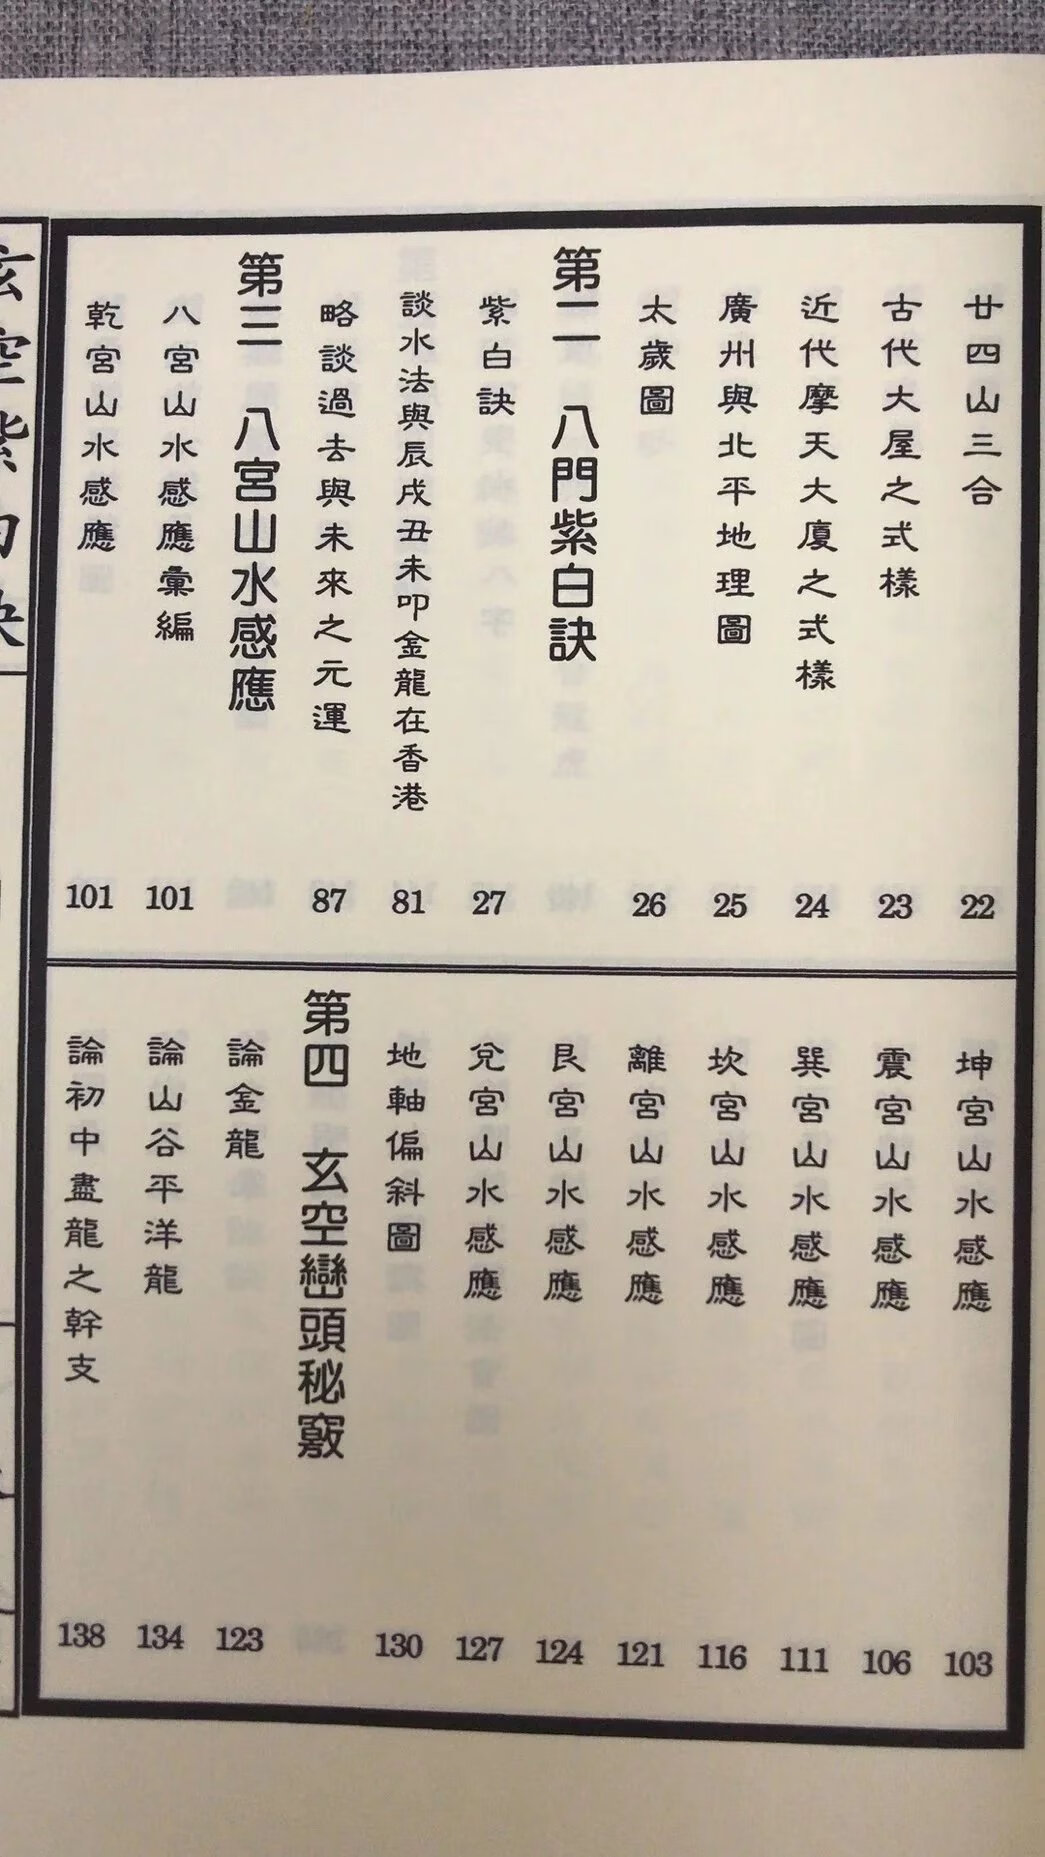 廿四山三合 22
古代大屋之式樣 23
近代摩天大廈之式樣 24
廣州與北平地理圖 25
太歲圖 26
第二 八門紫白訣
紫白訣 27
談水法與辰戌丑未叩金龍在香港 81
略談過去與未來之元運 87
第三 八宮山水感應
八宮山水感應彙編 101
乾宮山水感應 101
坤宮山水感應 103
震宮山水感應 106
巽宮山水感應 111
坎宮山水感應 116
離宮山水感應 121
艮宮山水感應 124
兌宮山水感應 127
地軸偏斜圖 130
第四 玄空巒頭秘竅
論金龍 123
論山谷平洋龍 134
論初中盡龍之幹支 138